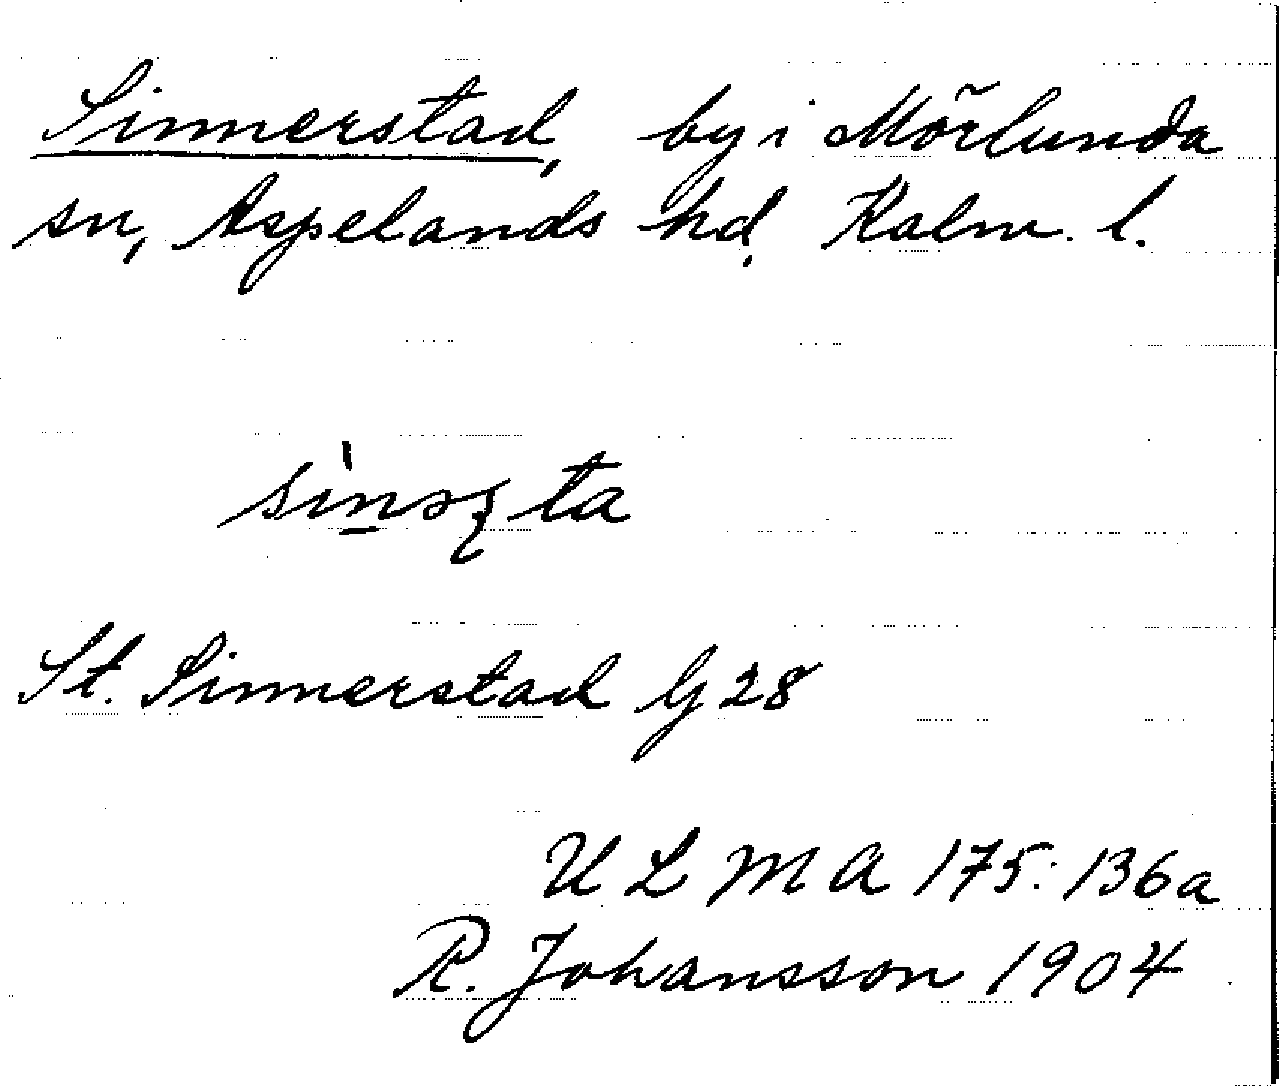 Sinnerstad, by i Mörlunda
sn, Aspelands hd, Kalm. l.
St. Sinnerstad G 28
ULMA 175:136a
R. Johansson 1904